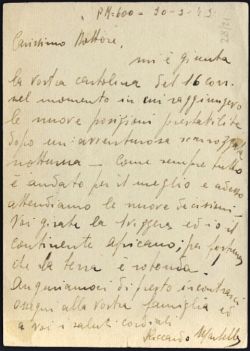 P.M. 600 - 30-3-43
Carissimo Dottore,
mi è giunta
la vostra cartolina del 16 corr.
nel momento in cui raggiungevo
le nuove posizioni prestabilite
dopo un'avventurosa
notturna - Come sempre tutto
è andato per il meglio e adesso
attendiamo le nuove decisioni.
Voi girate la ed io il
continente africano; per fortuna
che la terra è rotonda.
Auguriamoci di presto incontrarci
ossequi alla vostra famiglia ed
a voi i saluti cordiali
Riccardo